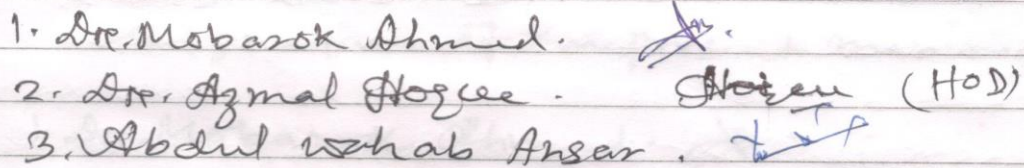 1. Dr. Mobarok Ahmed.
2. Dr. Azmal Hoque. (HOD)
3. Abdul wahab Ansar.